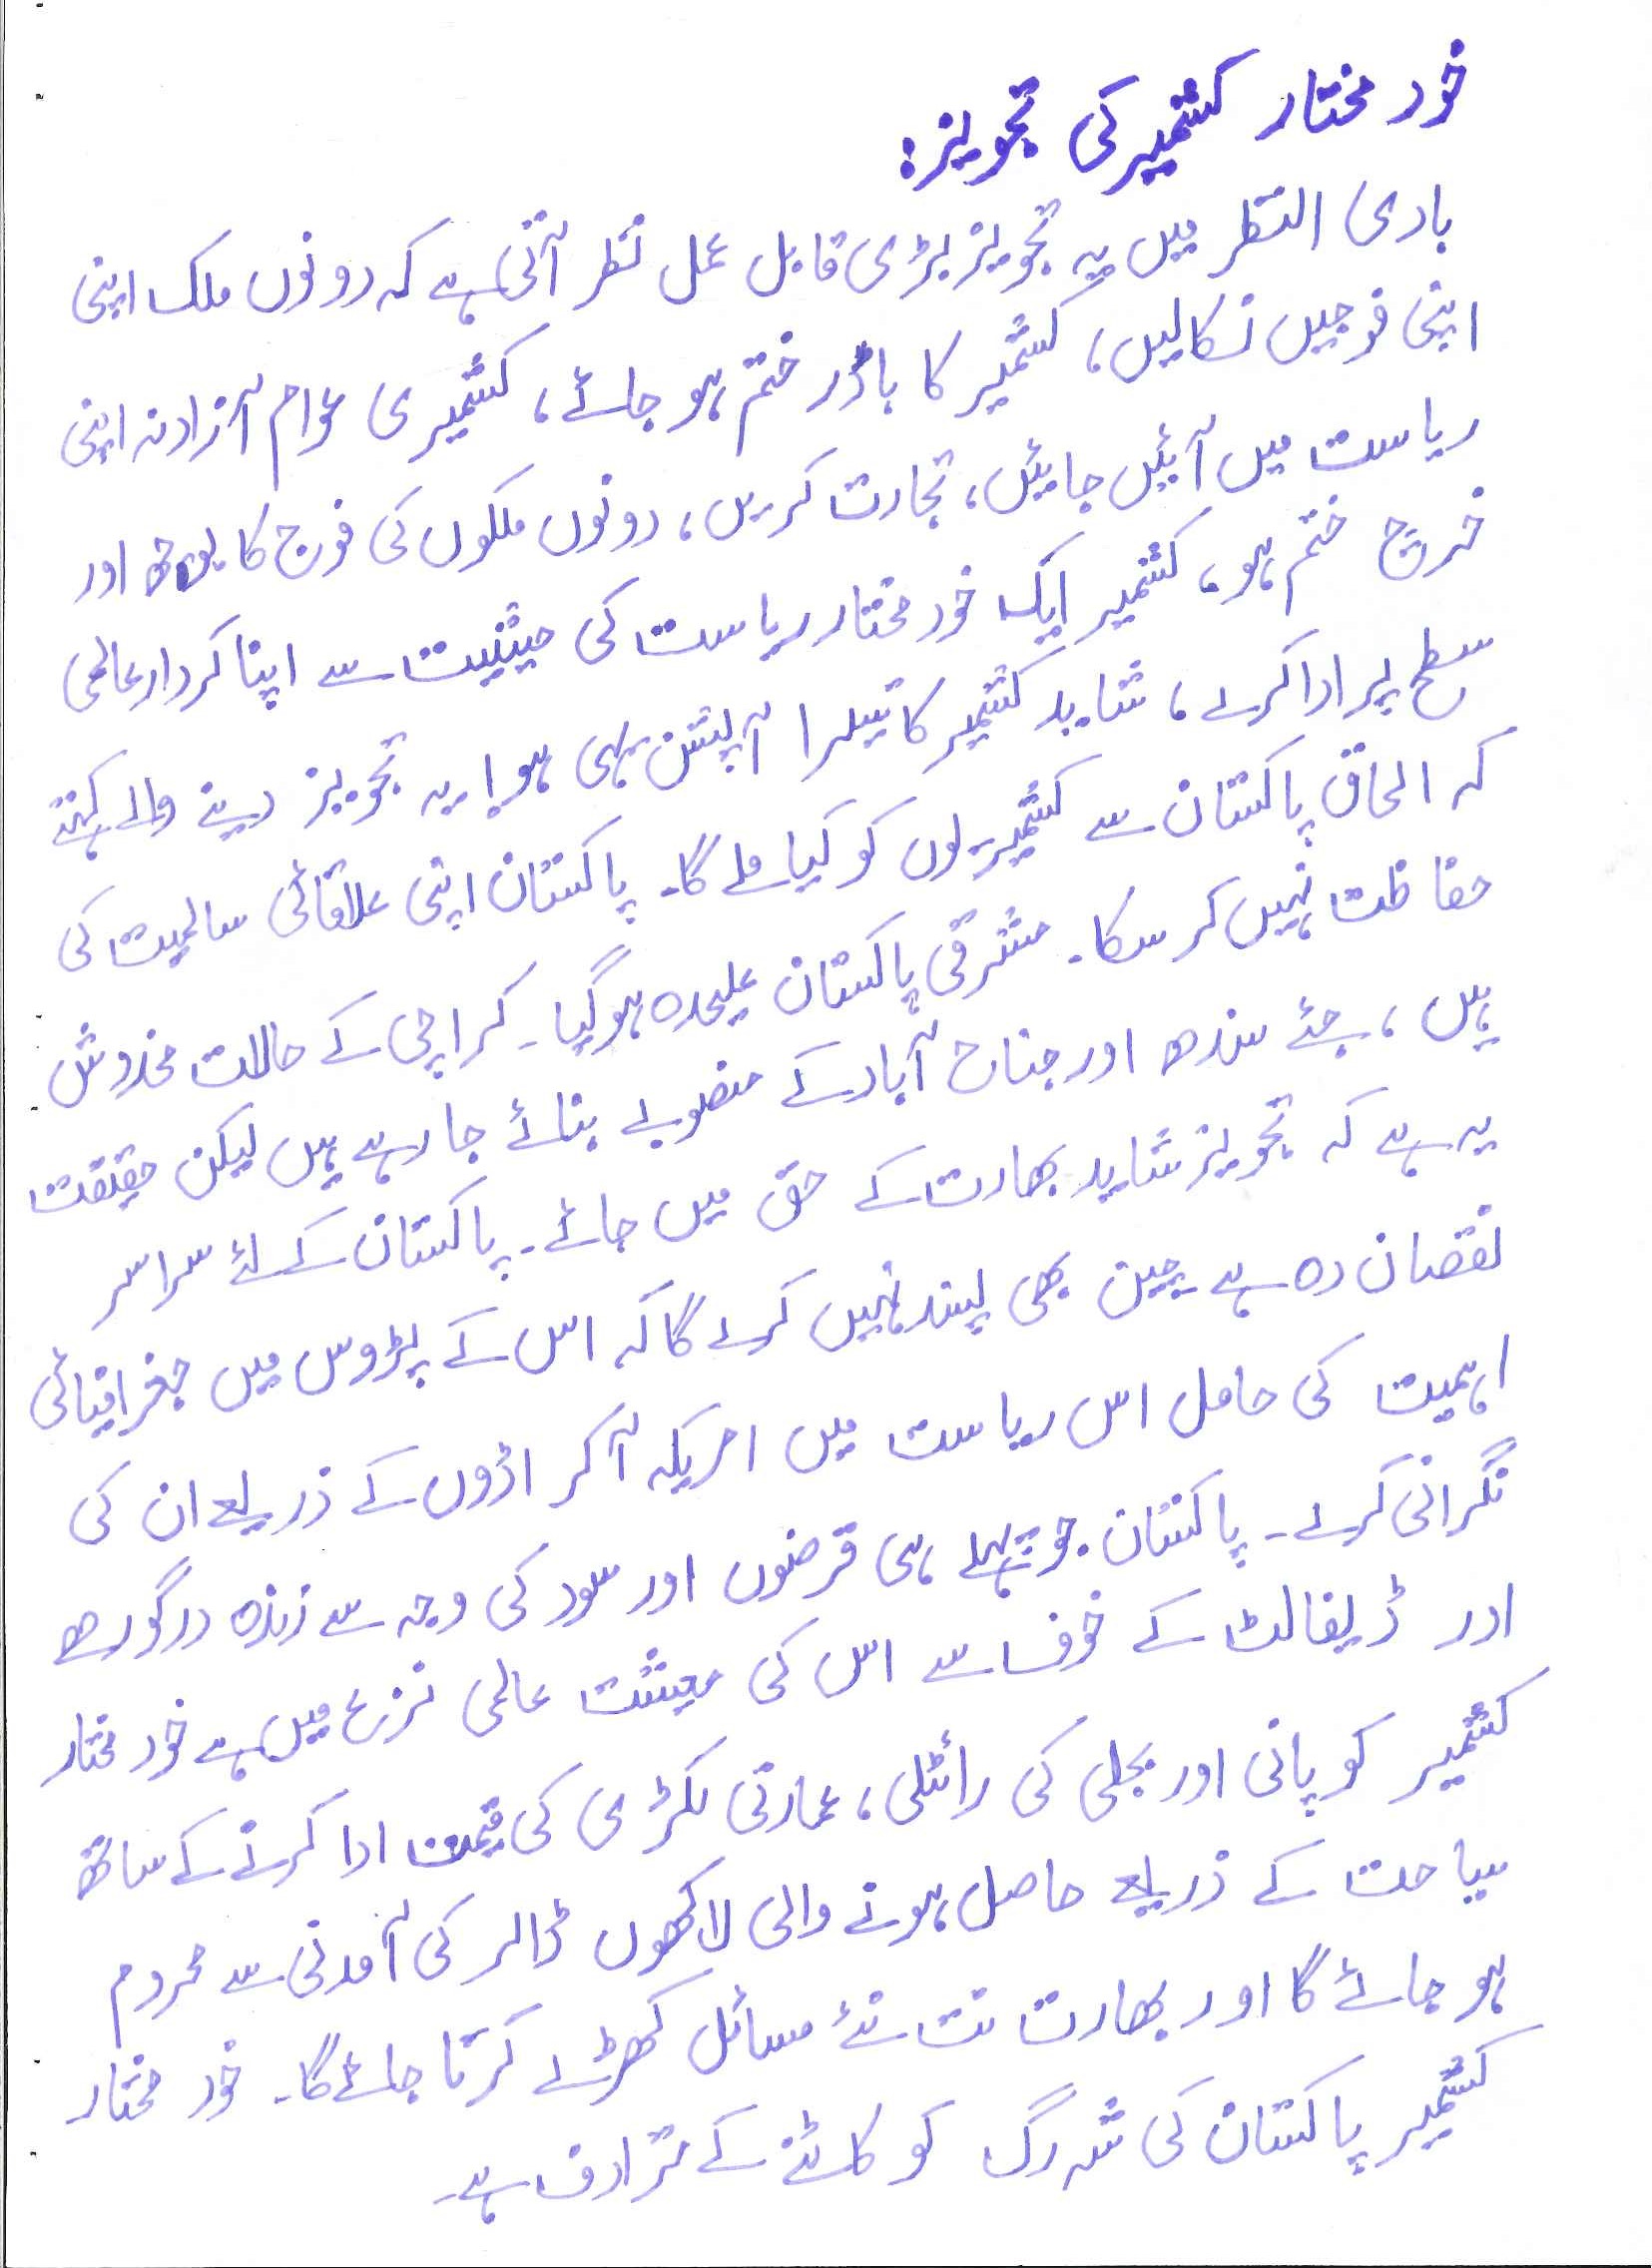 خود مختار کشمیر کی تجویز:
بادی النظر میں یہ تجویز بڑی قابل عمل نظر آتی ہے کہ دونوں ملک اپنی
اپنی فوجیں نکالیں، کشمیر کا باڈر ختم ہو جائے، کشمیری عوام آزادنہ اپنی
ریاست میں آئیں جائیں، تجارت کریں، دونوں ملکوں کی فوج کا بوجھ اور
خرچ ختم ہو، کشمیر ایک خود مختار ریاست کی حیثیت سے اپنا کردار عالمی
سطح پر ادا کرے، شاید کشمیر کا تیسرا آپشن یہی ہو! یہ تجویز دینے والے کہتے
کہ الحاق پاکستان سے کشمیریوں کو کیا ملے گا۔ پاکستان اپنی علاقائی سالمیت کی
حفاظت نہیں کر سکا۔ مشرقی پاکستان علیحدہ ہو گیا۔ کراچی کے حالات مخدوش
ہیں، جئے سندھ اور جناح آباد کے منصوبے بنائے جا رہے ہیں لیکن حقیقت
یہ ہے کہ تجویز شاید بھارت کے حق میں جائے۔ پاکستان کے لئے سراسر
نقصان دہ ہے۔ چین بھی پسند نہیں کرے گا کہ اس کے پڑوس میں جغرافیائی
اہمیت کی حامل اس ریاست میں امریکہ آ کر اڈوں کے ذریعے ان کی
نگرانی کرے۔ پاکستان جو پہلے ہی قرضوں اور سود کی وجہ سے زندہ درگور ہے
اور ڈیفالٹ کے خوف سے اس کی معیشت عالمی نزع میں ہے خود مختار
کشمیر کو پانی اور بجلی کی رائلٹی، عمارتی لکڑی کی قیمت ادا کرنے کے ساتھ
سیاحت کے ذریعے حاصل ہونے والی لاکھوں ڈالر کی آمدنی سے محروم
ہو جائے گا اور بھارت نت نئے مسائل کھڑے کرتا جائے گا۔ خود مختار
کشمیر پاکستان کی شہ رگ کو کاٹنے کے مترادف ہے۔